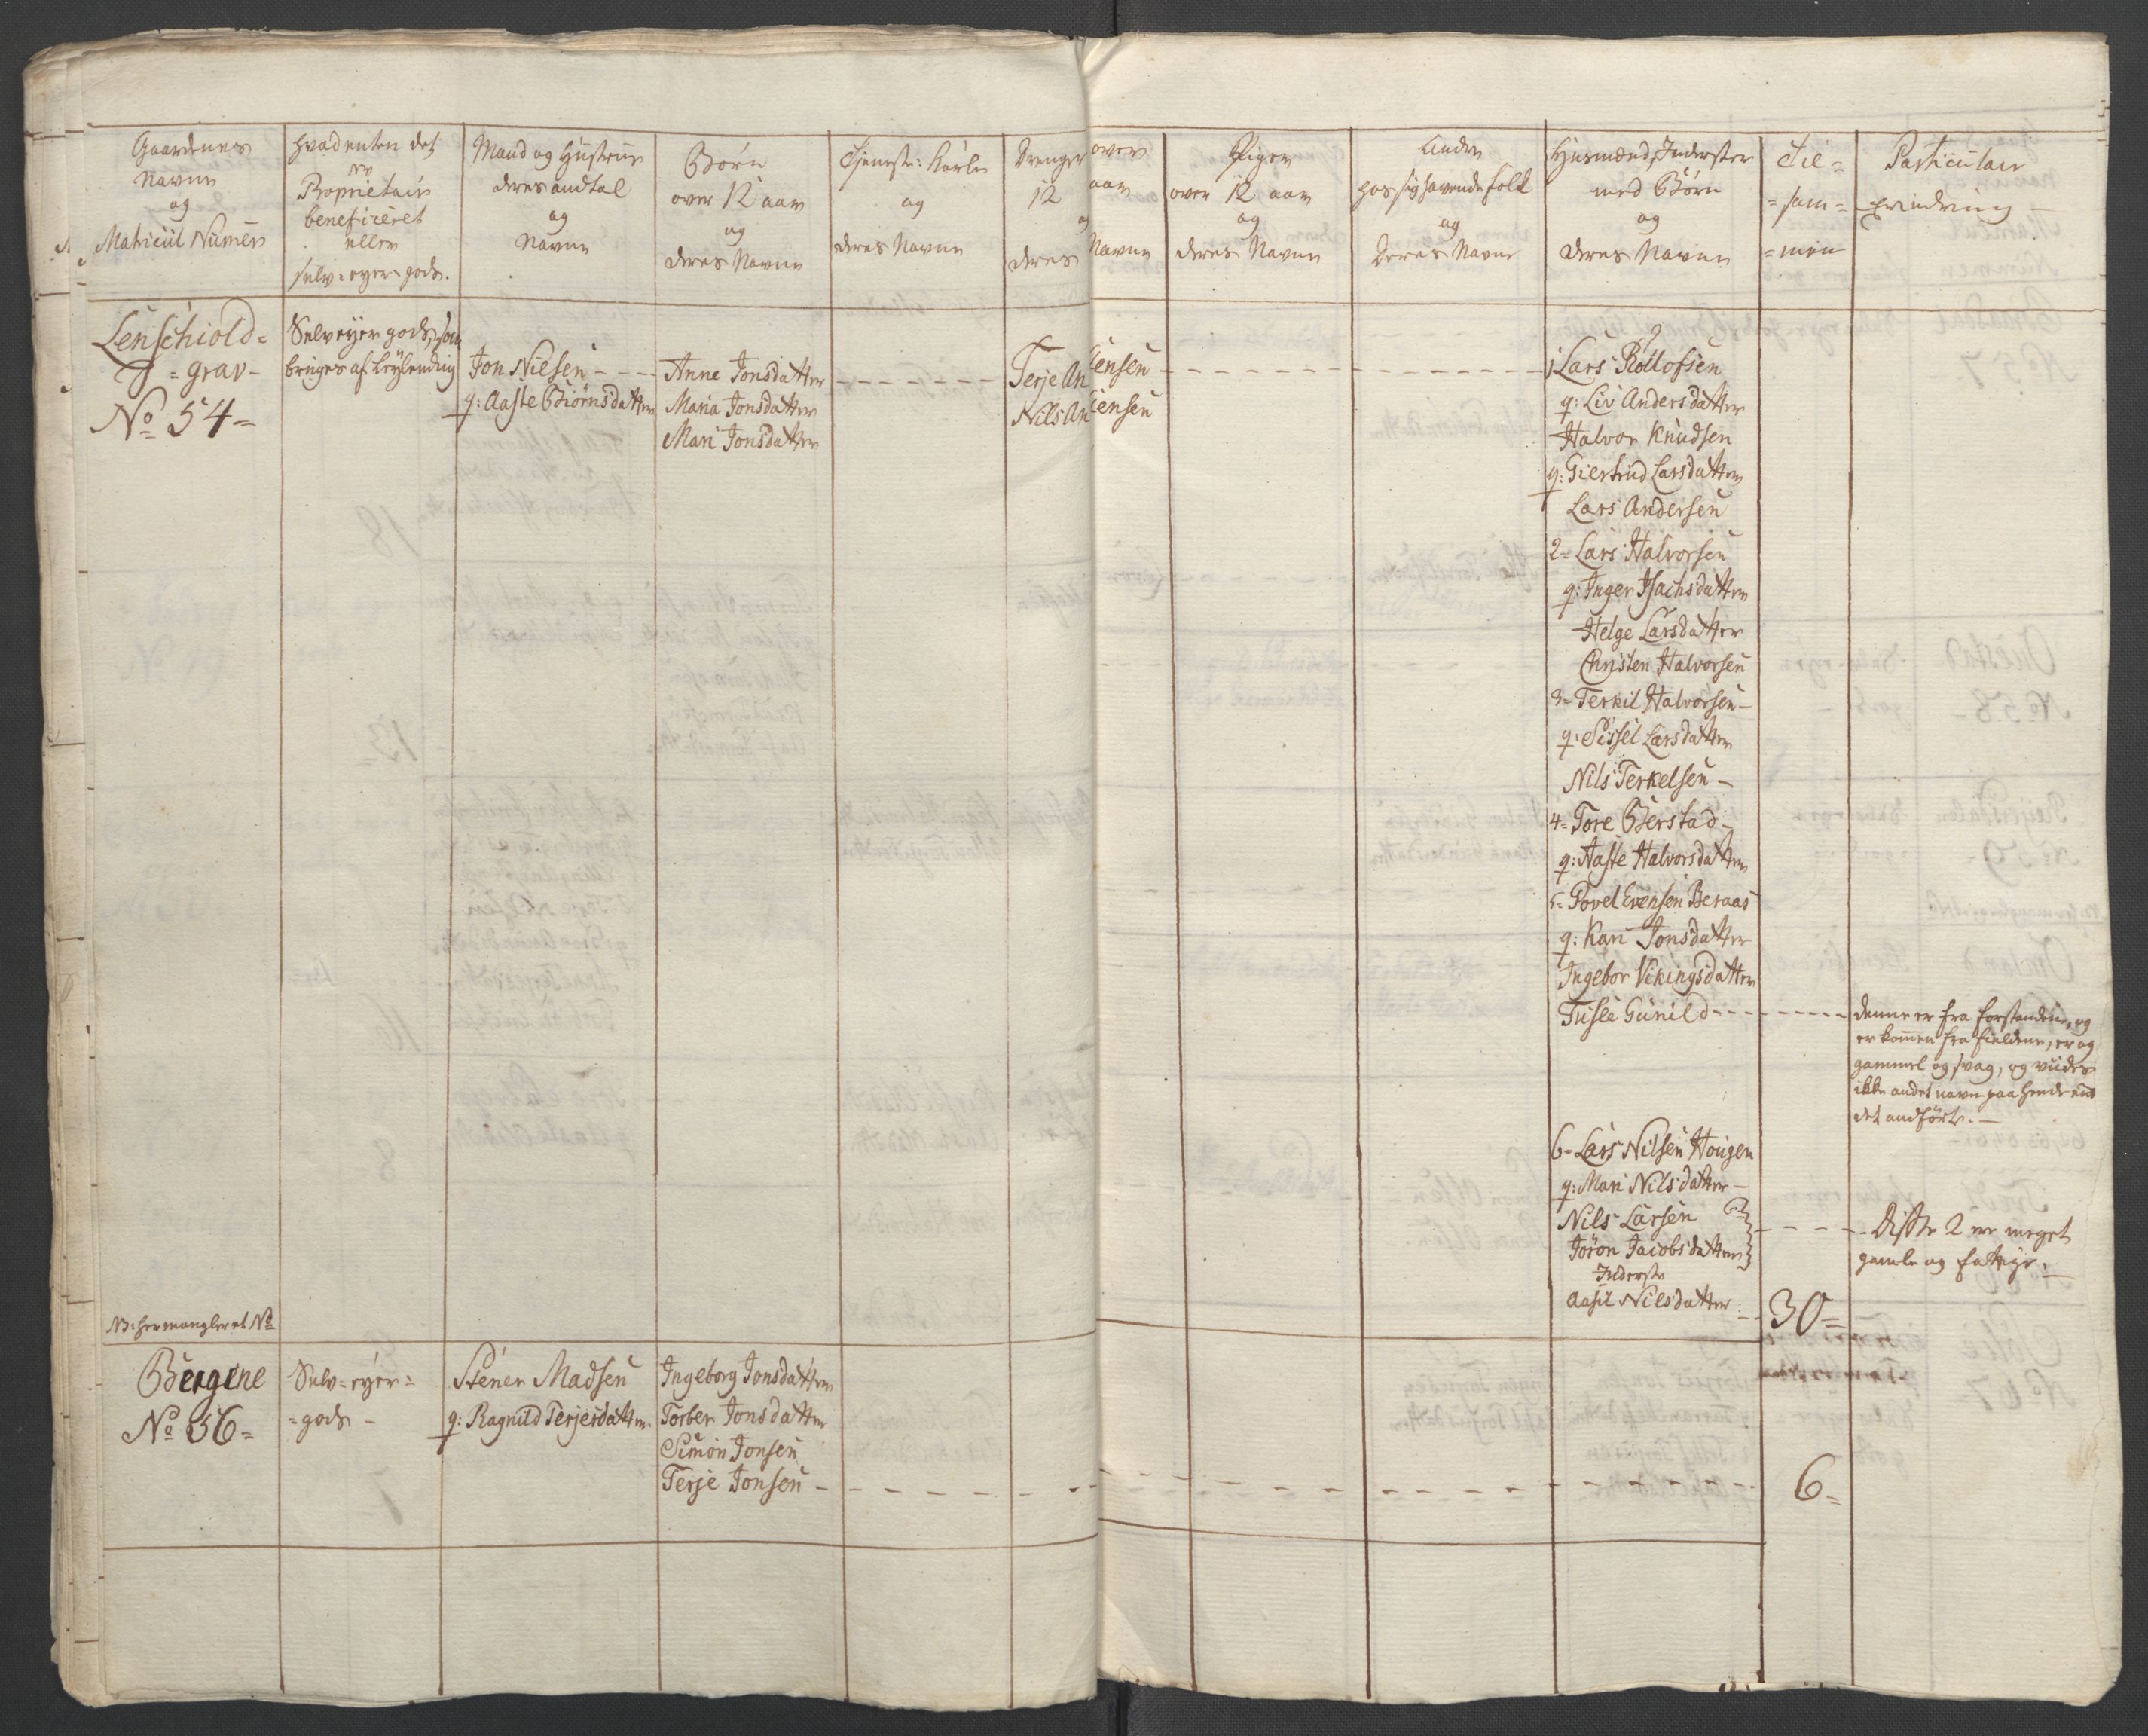 Gaardenes
Navne
og
Matricul Numer
Hvad enten det
er
Proprietair
beneficeret
eller
selv-eyer-gods.
Mand og Hustrue
deres andtal
og
Navne
Børn
over 12 aar
og
deres Navne
Tjeneste: Karle
og
deres Navne
Drenger over
12 aar
og
deres Navne
Piger
over 12 aar
og
deres Navne
Andre
hos sig havende folk
og
Deres Navne
Husmænd, Inderster
med Børn
og
deres Navne
Til=
=sam=
=men
Particulair
erindring
Lenschiold=
=grav-
No 54=
Selveyer gods, som
bruges af Leylending
Jon Nielsen - - -
q: Aaste Biørnsdatter
Anne Jonsdatter
Maria Jonsdatter
Mari Jonsdatter
Terje Andersen
Nils
1 Lars Rollofsen
q: Liv Andersdatter
Halvor Knudsen
q: Giertrud Larsdatter
Lars Andersen
2= Lars Halvorsen
q: Inger Isachsdatter
Helge Larsdatter
Christen Halvorsen
3= Terkil Halvorsen -
q: Sissel Larsdatter
Nils Terkelsen -
4= Tore Bierstad -
q: Aaste Halvorsdatter
5= Povel Evensen Beraas
q: Kari Jonsdatter
Ingebor Vikingsdatter
Tusle Gunild - - -
denne er fra forstanden, og
er kommen fra fieldene, er og
gammel og svag, og vides
ikke andet navn paa hende end
det andførte. -
6= Lars Nilsen Hougen
q: Mari Nilsdatter -
Nils Larsen
Joron Jacobsdatter
Disse 2 ere meget
gamle og fattige.
Inderste
Aasil Nilsdatter
30=
NB: her mangler et No
Bergene
No 56=
Selv-eyer=
=gods -
Stener Madsen
q: Ragnild Terjesdatter
Ingeborg Jonsdatter
Torber Jonsdatter
Simon Jonsen
Terje Jonsen -
6=